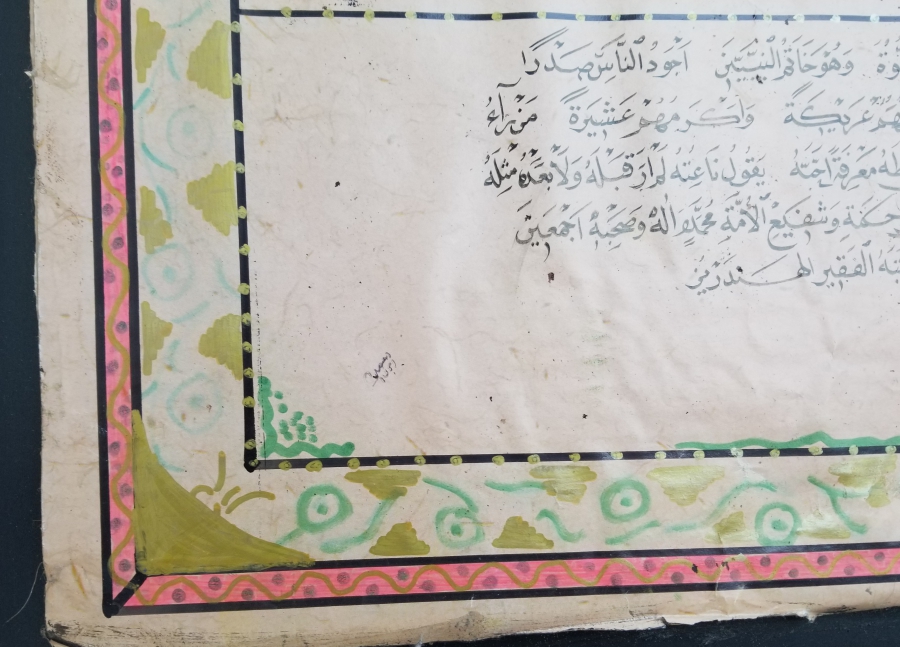 وَهُوَ خَاتَمُ النَّبِيِّينَ اَجْوَدُ النَّاسِ صَدْرًا
عَرِيكَةً وَاَكْرَمُهُمْ عَشِيرَةً مَنْ رَآهُ
مَعْرِفَةً اَحَبَّهُ يَقُولُ نَاعِتُهُ لَمْ اَرَ قَبْلَهُ وَلَا بَعْدَهُ مِثْلَهُ
وَشَفِيعِ الْاُمَّةِ مُحَمَّدٍ وَاٰلِهِ وَصَحْبِهِ اَجْمَعِينَ
الفقير